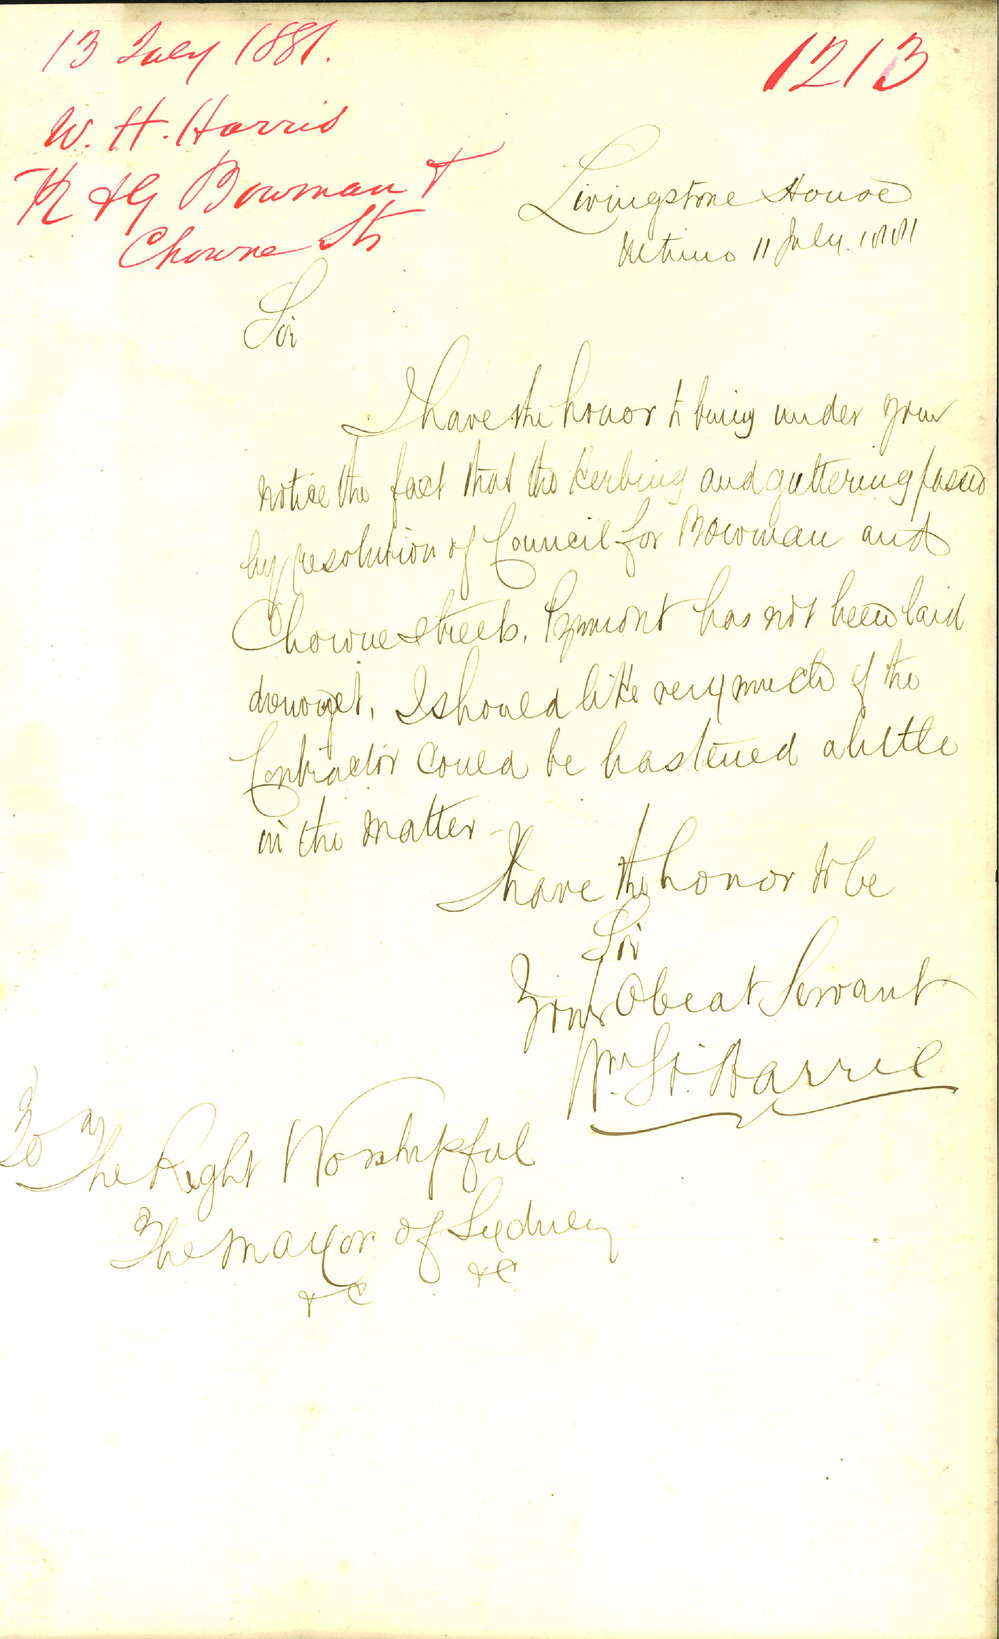 13 July 1881.
1213
W. H. Harris
K & G Bowman &
Chowne Sts
Livingstone House
11 July. 1881
Sir
I have the honor to bring under your
notice the fact that the Kerbing and guttering passed
by resolution of Council for Bowman and
Chowne streets. Pyrmont has not been laid
down yet. I should like very much if the
Contractor could be hastened a little
in the matter -
I have the honor to be
Sir
Your Obeat Servant
Wm. H. Harris
To
The Right Worshipful
The Mayor of Sydney
&c &c